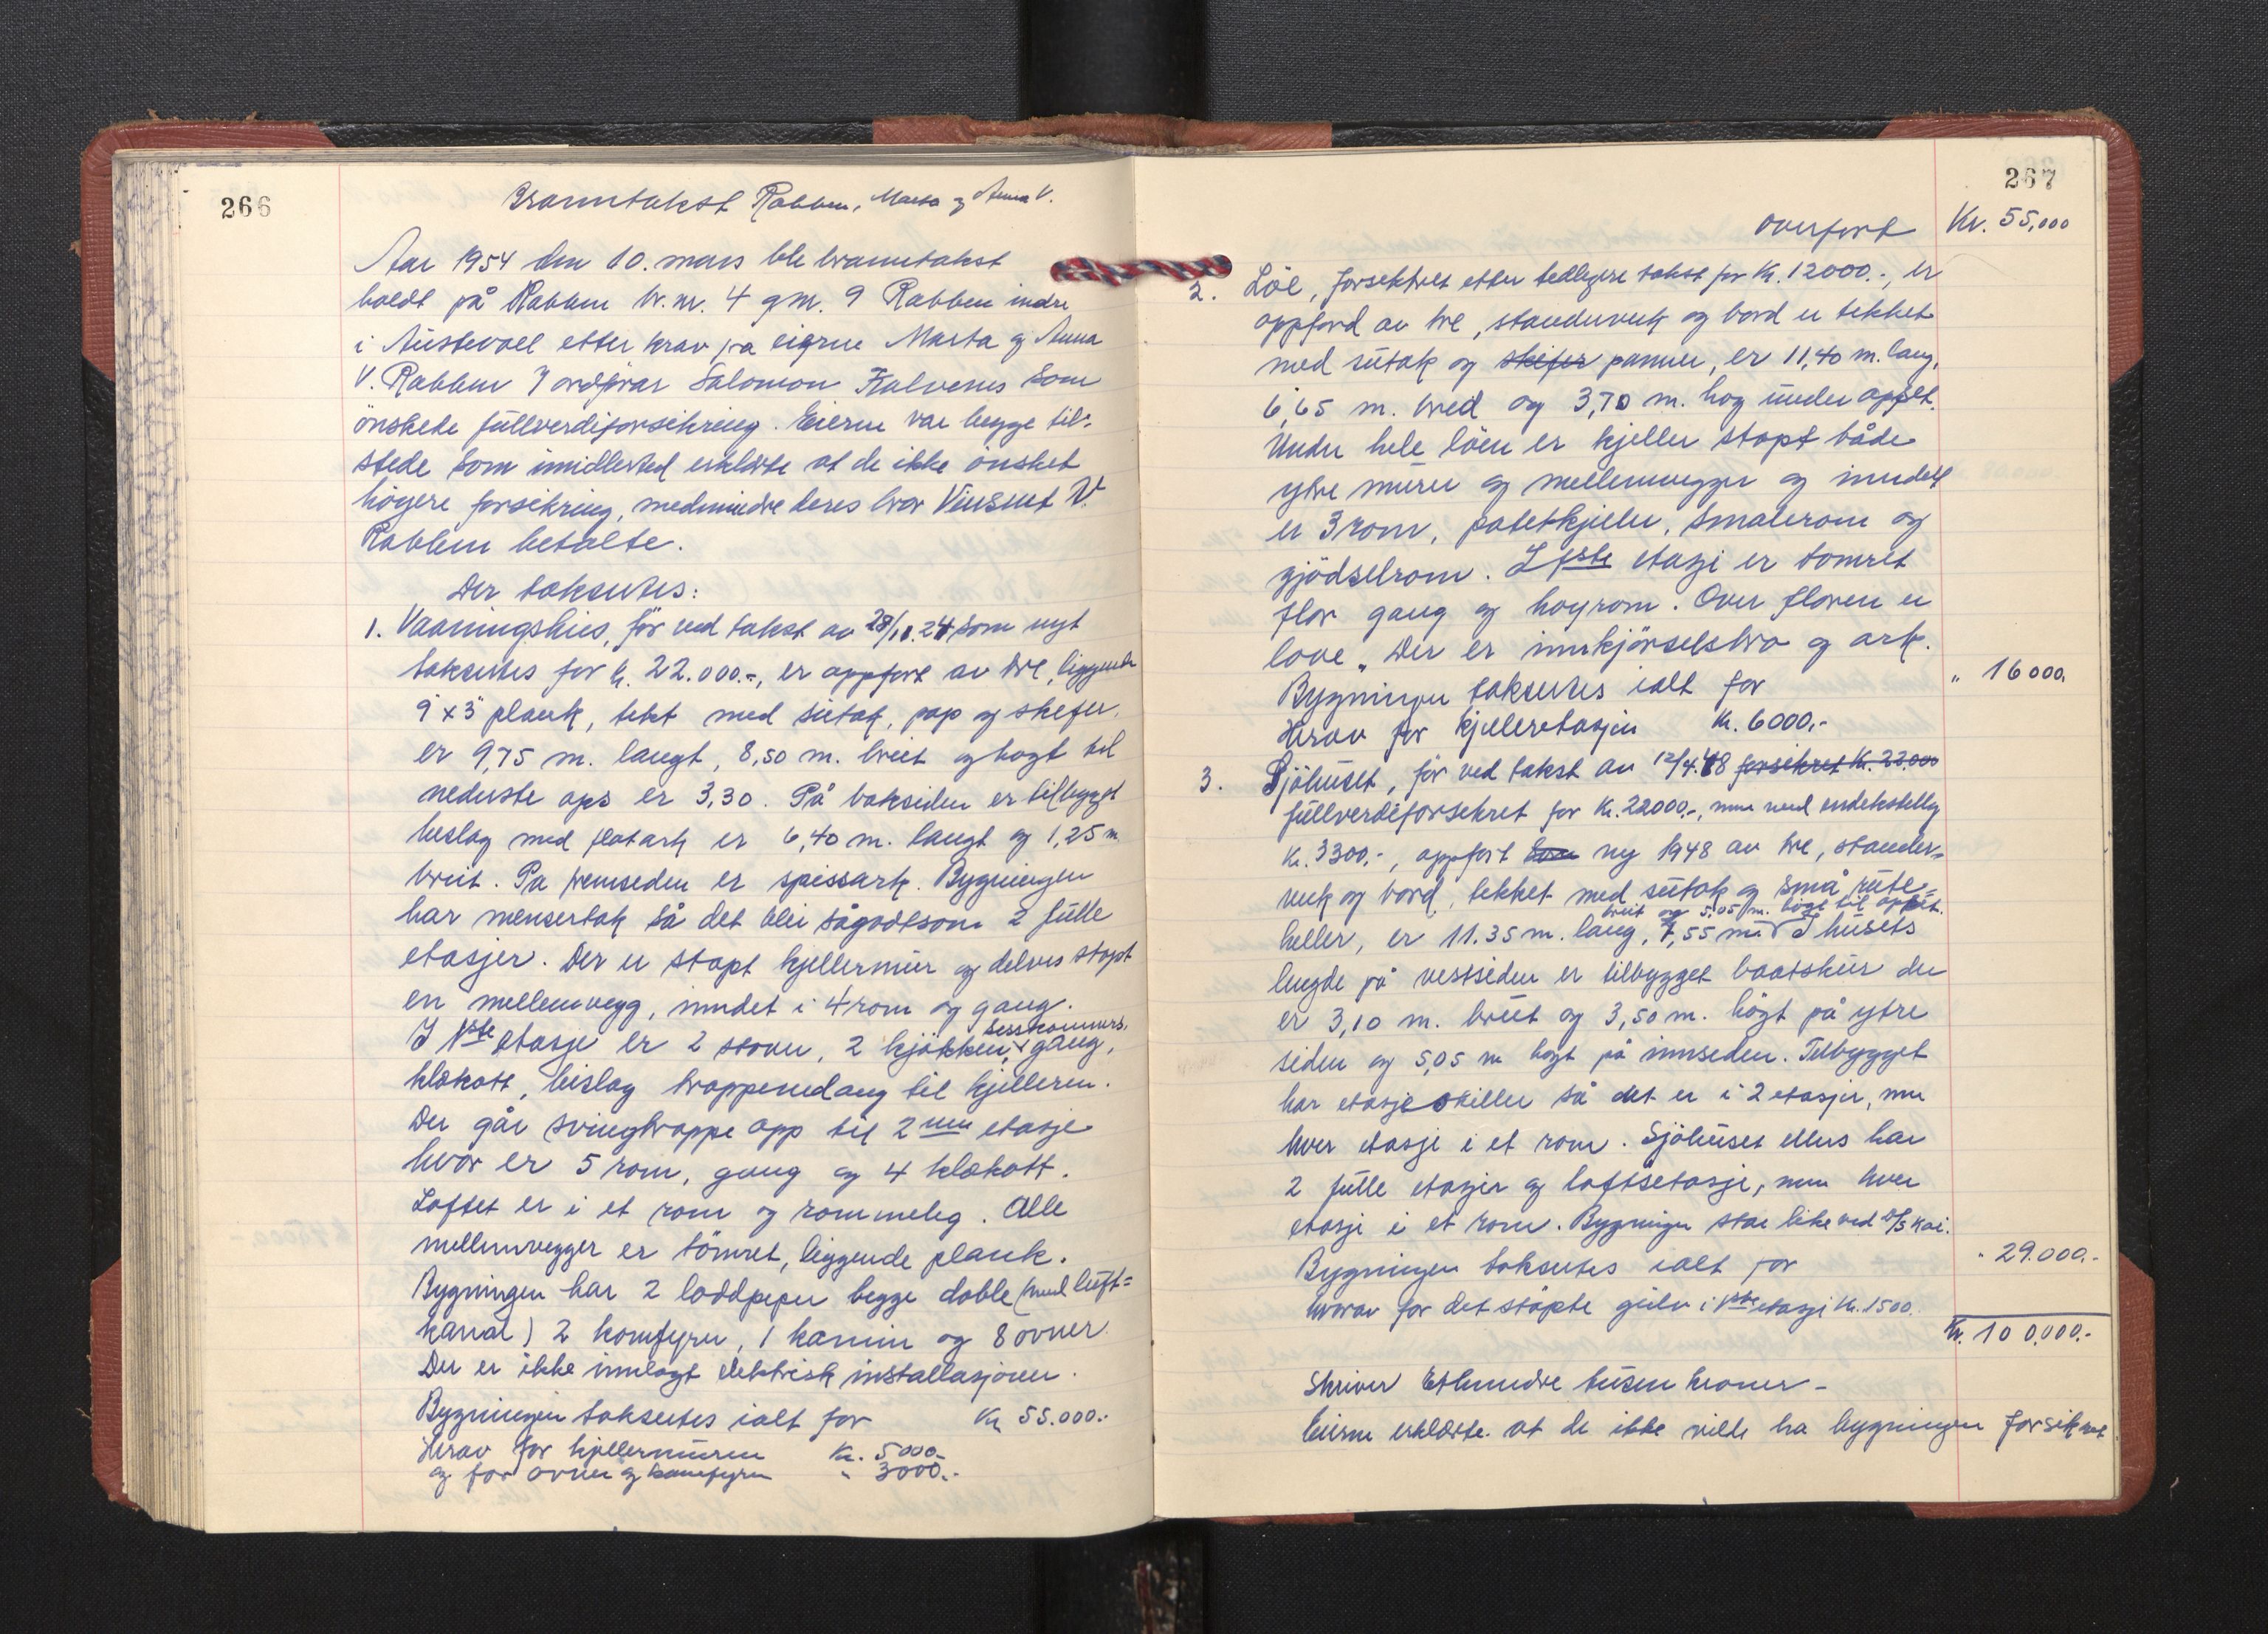 266
Branntakst Rabben, Marta og Anna V.
Aar 1954 den 10. mars ble branntakst
holdt på Rabben br. nr. 4 gnr. 9 Rabben indre
i Austevoll etter krav fra eigrne Marta og Anna
V. Rabben v/ ordfører Salomon Kalvenes som
önskede fullverdiforsikring. Eierne var begge til-
stede som imidlertid erklærte at de ikke önsket
högere forsikring, medmindre deres bror Vinsent V.
Rabben betalte.
Der takseres:
1. Vaaningshus, för ved takst av 28/11.24 som nyt
taksertes for kr. 22.000.-, er oppfort av tre, liggende
9" x 3" plank, tekt med sutak, pap og skefer.
er 9,75 m. langt, 8,50 m. breit og hogt til
nederste ops er 3,30. På baksiden er tilbygget
beslag med flatark er 6,40 m. langt og 1,25 m
breit. Pa fremseden er spissark. Bygningen
har mensertak så det blei sågodtsom 2 fulle
etasjer. Der er stopt kjellermur og delves stopt
en mellemvegg, inndet i 4 rom og gang.
I 1ste etasje er 2 stover, 2 kjökken, sesskammers, gang,
klekott, beislag trappenedang til kjelleren.
Der går svingtrappe opp til 2nen etasje
hvor er 5 rom, gang og 4 klekott.
Loftet er i et rom og rommeleg. Alle
mellemvegger er tömret, liggende plank.
Bygningen har 2 loddpeper begge doble (med luft=
kanal) 2 komfyrer, 1 kamin og 8 ovner.
Der er ikke innlagt elektrisk installasjoner.
Bygningen taksertes ialt for Kr. 55.000.-
Herav for kjellermuren Kr. 5000.-
og for ovner og komfyren " 3000.-
267
overfort Kr. 55,000
2. Löe, forsektret etter tedligere takst for Kr. 12000.-, er
oppford av tre, standerverk og bord er tekket
med sutak og skefer panner, er 11,40 m. lang,
6,65 m. bred og 3,70 m. hog under opset.
Under hele löen er kjeller stopt både
ytre murer og mellemvegger og inndelt
er 3 rom, potetkjeller, smalerom og
gjödselrom. I 1ste etasje er tomret
flor gang og hoyrom. Over floren er
love. Der er innkjörselsbro og ark.
Bygningen taksertes ialt for " 16000.
Herav for kjelleretasjen Kr. 6000.-
3. Sjöhuset, för ved takst av 12/4.48 forsikret Kr. 22.000
fullverdiforsekret for Kr. 22000.-, men med
Kr. 3300.-, oppfort som ny 1948 av tre, stander-
verk og bord, tekket med sutak og små rute=
heller, er 11.35 m. lang, 7,55 m. breit og 5,05 m. högt til opset. I husets
lengde på vestsiden er tilbygget baatskur der
er 3,10 m. breit og 3,50 m. högt på ytre
siden og 5,05 m hogt på innseden. Tilbygget
har etasjeskiller så det er i 2 etasjer, men
hver etasje i et rom. Sjöhuset ellers har
2 fulle etasjer og loftsetasje, men hver
etasje i et rom. Bygningen star like ved D/S kai.
Bygningen taksertes ialt for " 29.000.-
hvorav for det stöpte gulv i 1ste etasje Kr. 1500.
Kr. 100.000.-
Skriver Ethundre tusen kroner -
Eierne erklærte at de ikke vilde ha bygningen forsikret